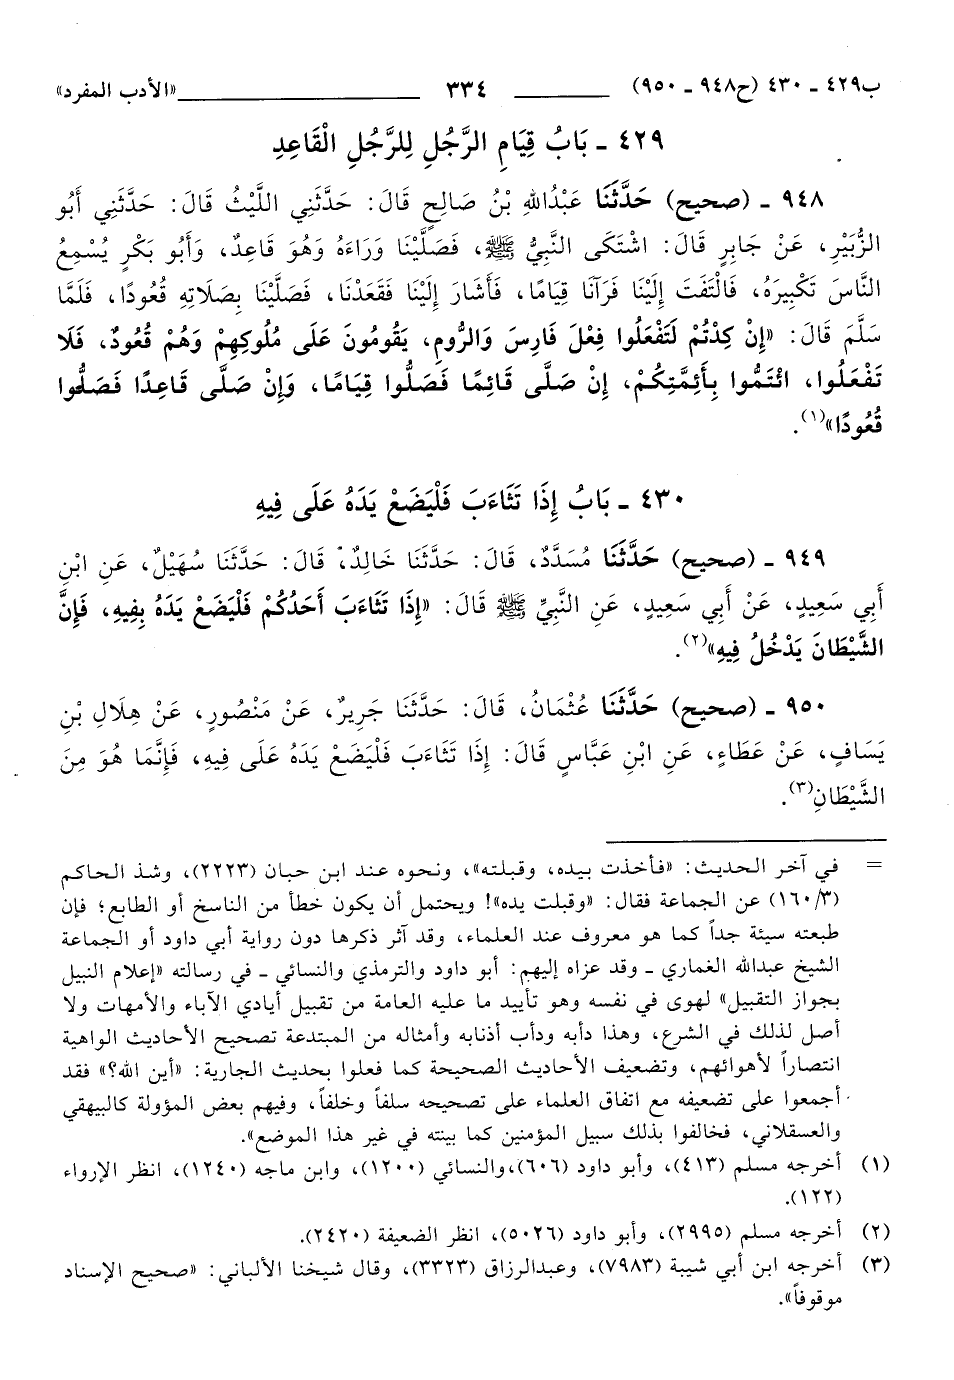 ب٤٢٩ ـ ٤٣٠ (ح٩٤٨ ـ ٩٥٠) ٣٣٤ «الأدب المفرد»
٤٢٩ ـ بَابُ قِيَامِ الرَّجُلِ لِلرَّجُلِ الْقَاعِدِ
٩٤٨ ـ (صحيح) حَدَّثَنَا عَبْدُاللهِ بْنُ صَالِحٍ قَالَ: حَدَّثَنِي اللَّيْثُ قَالَ: حَدَّثَنِي أَبُو
الزُّبَيْرِ، عَنْ جَابِرٍ قَالَ: اشْتَكَى النَّبِيُّ ﷺ، فَصَلَّيْنَا وَرَاءَهُ وَهُوَ قَاعِدٌ، وَأَبُو بَكْرٍ يُسْمِعُ
النَّاسَ تَكْبِيرَهُ، فَالْتَفَتَ إِلَيْنَا فَرَآنَا قِيَامًا، فَأَشَارَ إِلَيْنَا فَقَعَدْنَا، فَصَلَّيْنَا بِصَلَاتِهِ قُعُودًا، فَلَمَّا
سَلَّمَ قَالَ: «إِنْ كِدْتُمْ لَتَفْعَلُوا فِعْلَ فَارِسَ وَالرُّومِ، يَقُومُونَ عَلَى مُلُوكِهِمْ وَهُمْ قُعُودٌ، فَلَا
تَفْعَلُوا، ائْتَمُّوا بِأَئِمَّتِكُمْ، إِنْ صَلَّى قَائِمًا فَصَلُّوا قِيَامًا، وَإِنْ صَلَّى قَاعِدًا فَصَلُّوا
قُعُودًا»(١).
٤٣٠ ـ بَابُ إِذَا تَثَاءَبَ فَلْيَضَعْ يَدَهُ عَلَى فِيهِ
٩٤٩ ـ (صحيح) حَدَّثَنَا مُسَدَّدٌ، قَالَ: حَدَّثَنَا خَالِدٌ، قَالَ: حَدَّثَنَا سُهَيْلٌ، عَنِ ابْنِ
أَبِي سَعِيدٍ، عَنْ أَبِي سَعِيدٍ، عَنِ النَّبِيِّ ﷺ قَالَ: «إِذَا تَثَاءَبَ أَحَدُكُمْ فَلْيَضَعْ يَدَهُ بِفِيهِ، فَإِنَّ
الشَّيْطَانَ يَدْخُلُ فِيهِ»(٢).
٩٥٠ ـ (صحيح) حَدَّثَنَا عُثْمَانُ، قَالَ: حَدَّثَنَا جَرِيرٌ، عَنْ مَنْصُورٍ، عَنْ هِلَالِ بْنِ
يَسَافٍ، عَنْ عَطَاءٍ، عَنِ ابْنِ عَبَّاسٍ قَالَ: إِذَا تَثَاءَبَ فَلْيَضَعْ يَدَهُ عَلَى فِيهِ، فَإِنَّمَا هُوَ مِنَ
الشَّيْطَانِ(٣).
= في آخر الحديث: «فأخذت بيده، وقبلته»، ونحوه عند ابن حبان (٢٢٢٣)، وشذ الحاكم
(٣/١٦٠) عن الجماعة فقال: «وقبلت يده»! ويحتمل أن يكون خطأ من الناسخ أو الطابع؛ فإن
طبعته سيئة جداً كما هو معروف عند العلماء، وقد آثر ذكرها دون رواية أبي داود أو الجماعة
الشيخ عبدالله الغماري ـ وقد عزاه إليهم: أبو داود والترمذي والنسائي ـ في رسالته «إعلام النبيل
بجواز التقبيل» لهوى في نفسه وهو تأييد ما عليه العامة من تقبيل أيادي الآباء والأمهات ولا
أصل لذلك في الشرع، وهذا دأبه ودأب أذنابه وأمثاله من المبتدعة تصحيح الأحاديث الواهية
انتصاراً لأهوائهم، وتضعيف الأحاديث الصحيحة كما فعلوا بحديث الجارية: «أين الله؟» فقد
أجمعوا على تضعيفه مع اتفاق العلماء على تصحيحه سلفاً وخلفاً، وفيهم بعض المؤولة كالبيهقي
والعسقلاني، فخالفوا بذلك سبيل المؤمنين كما بينته في غير هذا الموضع».
(١) أخرجه مسلم (٤١٣)، وأبو داود (٦٠٦)،والنسائي (١٢٠٠)، وابن ماجه (١٢٤٠)، انظر الإرواء
(١٢٢).
(٢) أخرجه مسلم (٢٩٩٥)، وأبو داود (٥٠٢٦)، انظر الضعيفة (٢٤٢٠).
(٣) أخرجه ابن أبي شيبة (٧٩٨٣)، وعبدالرزاق (٣٣٢٣)، وقال شيخنا الألباني: «صحيح الإسناد
موقوفاً».